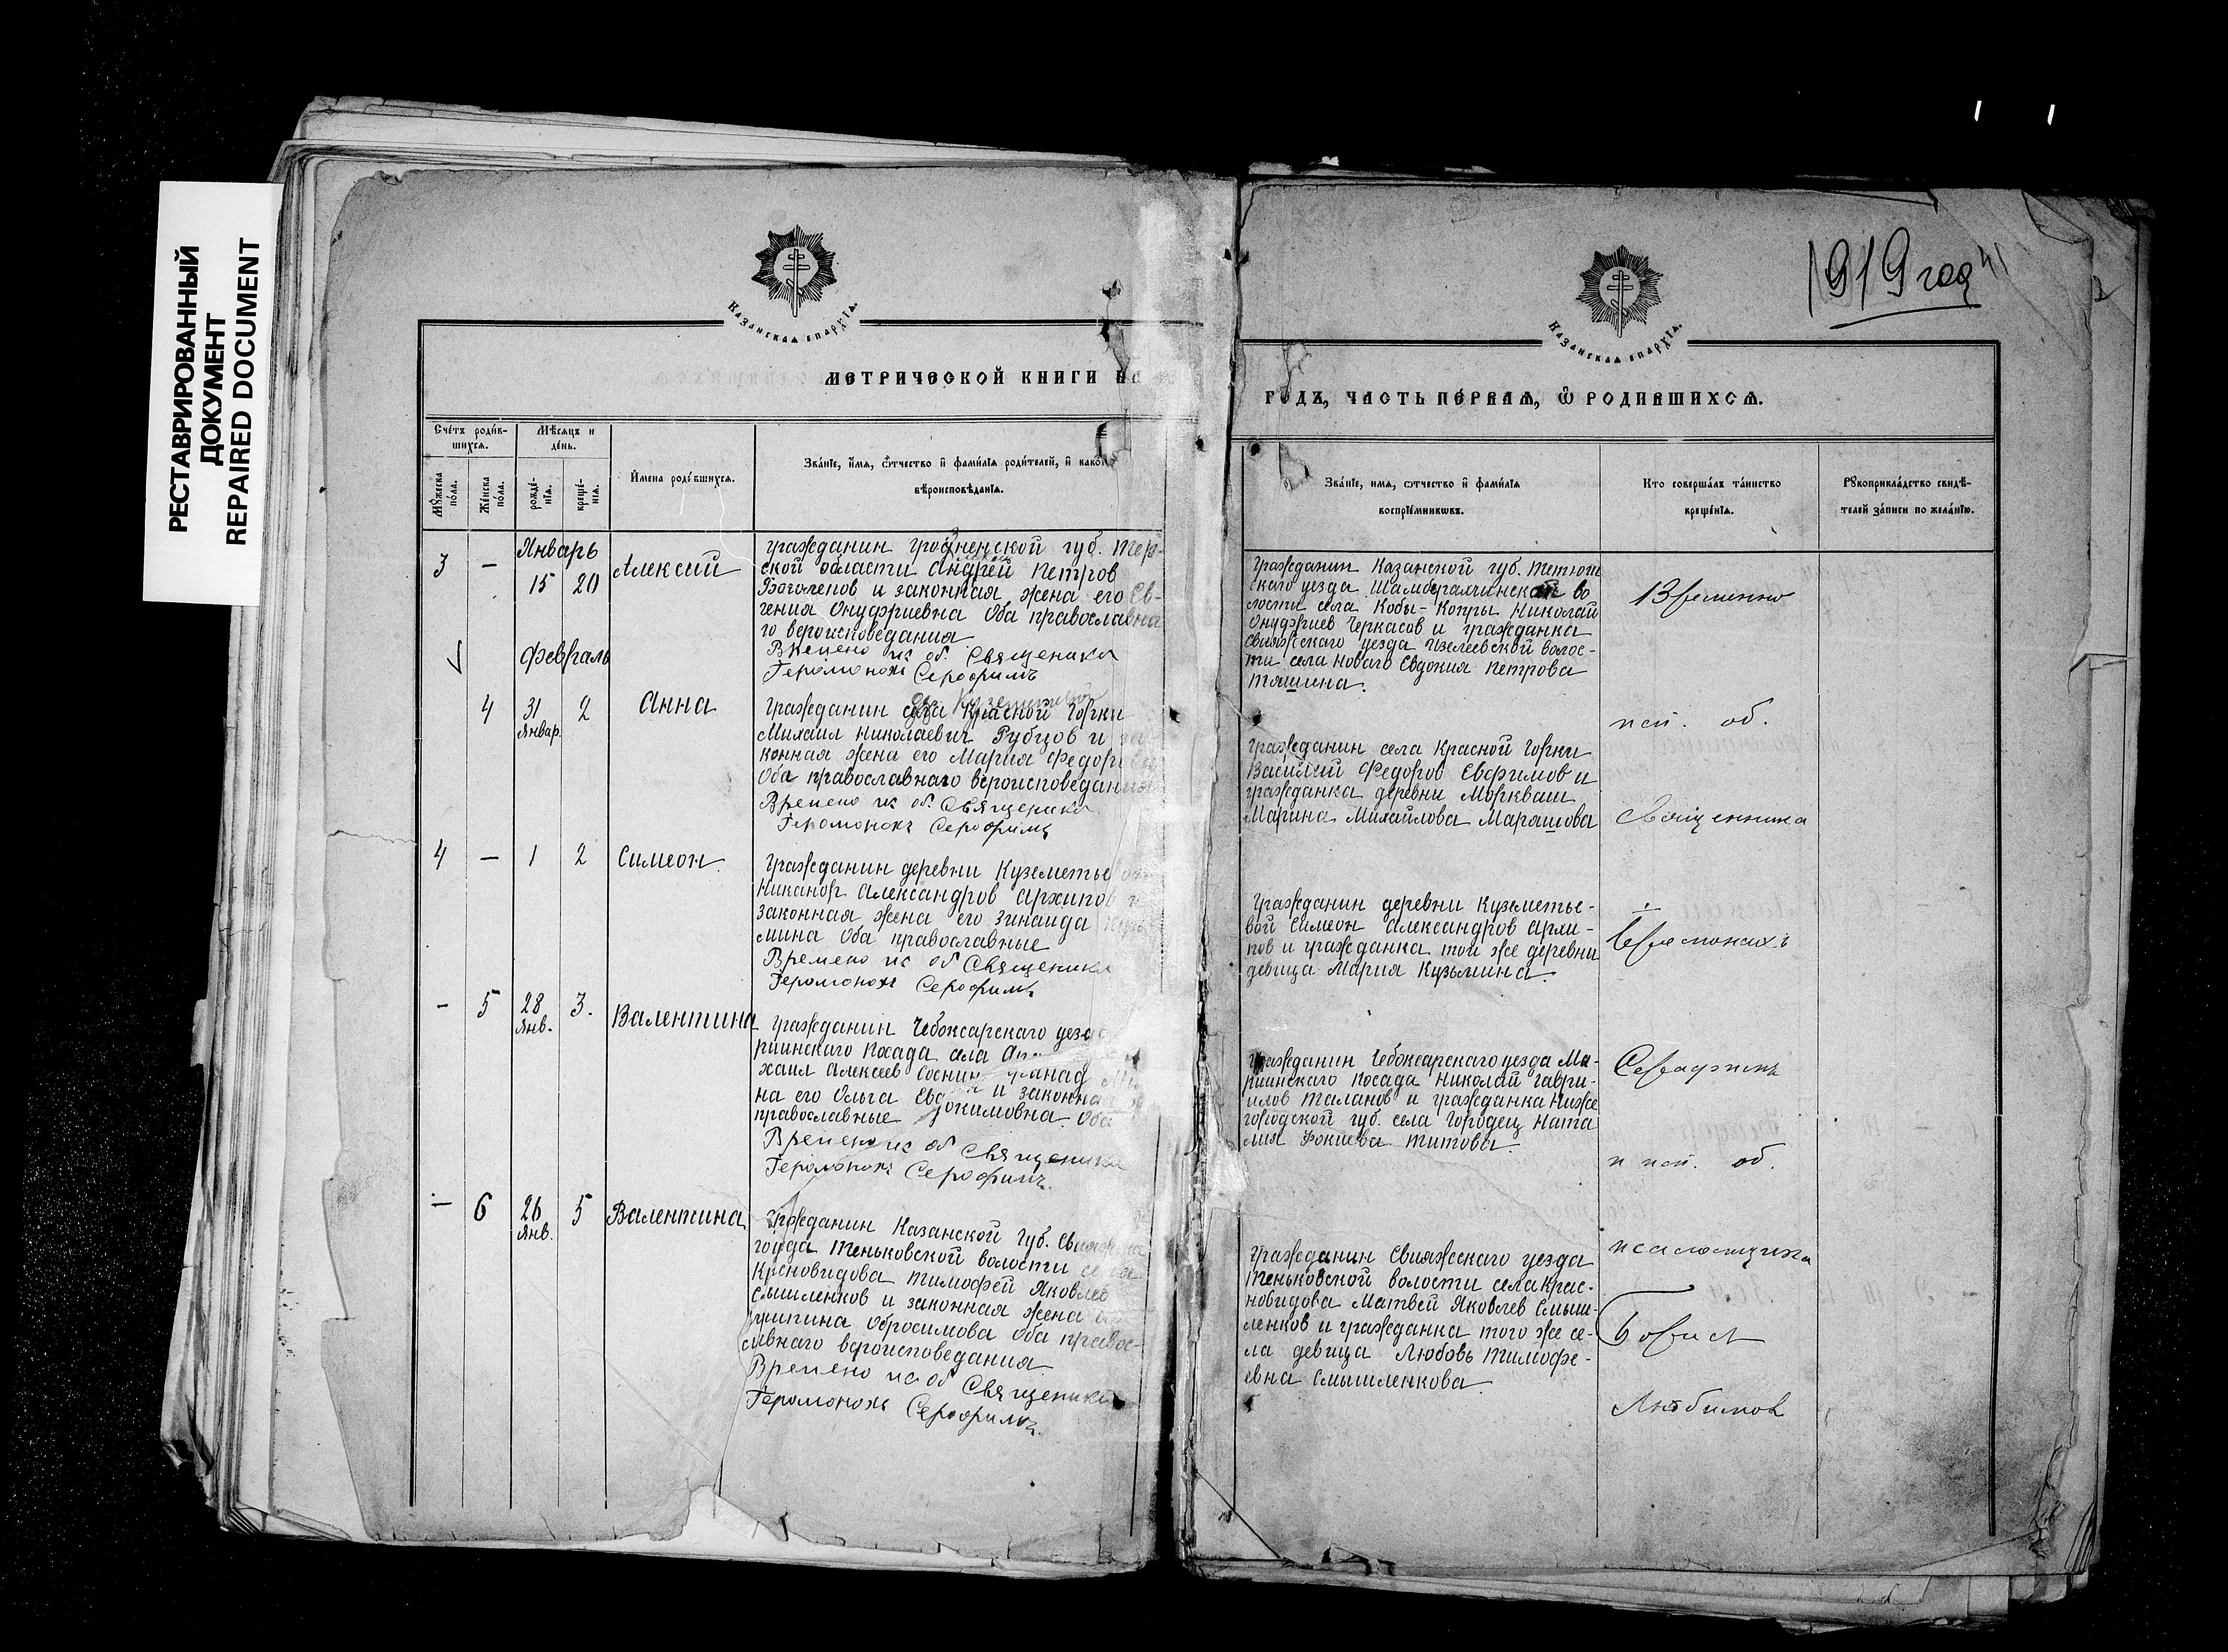 РЕСТАВРИРОВАННЫЙ
ДОКУМЕНТ
REPAIRED DOCUMENT
Казанская епархїя.
МЕТРИЧЕСКОЙ КНИГИ НА
Счётъ роди́в-
шихся.
Мѣсяцъ и
де́нь.
Мꙋ́жеска
по́ла.
Же́нска
по́ла.
рожде́-
нїя.
креще́-
нїя.
И́мена роди́вшихся.
Зва́нїе, и́мя, ѻ҆́тчество и҆ фами́лїя роди́телей, и҆ како́гѡ
вѣроисповѣ́данїя.
3 – Январь
15 20 Алексий
Гражданин Грозненской губ. Тер-
ской области Андрей Петров
Боголепов и законная жена его Ев-
гения Онуфриевна Оба православна
го вероисповедания
Времено ис об. Священика
Геромонохъ Серофимъ
Февраль
4 31 2 Анна
Январ.
Гражданин села Красной Горки
Михаил Николаевич Рубцов и за
конная жена его Мария Федоро
Оба православнаго вероисповедания
Времено ис об. Священика
Геромонохъ Серофимъ
4 – 1 2 Симеон.
Гражданин деревни Куземетье
Никанор Александров Архипов и
законная жена его Зинаида
мина Оба православные
Времено ис об Священика
Геромонохъ Серофимъ
– 5 28 3. Валентина
Янв.
Гражданин Чебоксарского уезда
риинского Посада
хаил Алексеев Соснин
на его Ольга Евдокимовна и законная
православные Оба
Времено ис об Священика
Геромонохъ Серофимъ.
– 6 26 5 Валентина
Янв.
Гражданин Казанской Губ. Свияж
Теньковской волости села
Красновидова Тимофей Яковлев
Смышленков и законная жена
Обросимова Оба правос-
лавнаго вероисповедания
Времено ис об Священика
Геромонохъ Серофимъ.
1919 год
Казанская епархїя.
ГОДЪ, ЧАСТЬ ПЕ́РВАЯ, Ѽ РОДИВШИХСЯ.
Зва́нїе, имя, ѻтчество и҆ фами́лїя
воспрїе́мникѡвъ.
Кто соверша́лъ та́инство
креще́нїя.
Рꙋкоприкла́дство свидѣ́-
телей за́писи по жела́нїю.
Гражданин Казанской губ. Тетюш
ского уезда Шамбулыхчинской во
лости села Кобы-Копры Николай
Онуфриев Черкасов и гражданка
Свияжского уезда Ивелеевской волос-
ти села Новаго Евдокия Петрова
Тяшина.
Гражданин села Красной Горки
Василий Федоров Евфимов и
гражданка деревни Моркваши
Марина Михайлова Марашова
Гражданин деревни Куземетье-
вой Симеон Александров Архи-
пов и гражданка той же деревни
девица Мария Кузьмина.
Гражданин Чебоксарскаго уезда Ма-
риинскаго Посада Николай Гаври-
илов Таланов и гражданка Ниже
городской губ. села Городец Ната
лия Фокиева Титова.
Гражданин Свияжескаго уезда
Теньковской волости села Крас-
новидова Матвей Яковлев Смыш-
ленков и гражданка того же се-
ла девица Любовь Тимофе-
евна Смышленкова.
Временно
исп. об.
Священника
Иеромонахъ
Серафимъ
и исп. об.
псаломщика
Борис
Любимов